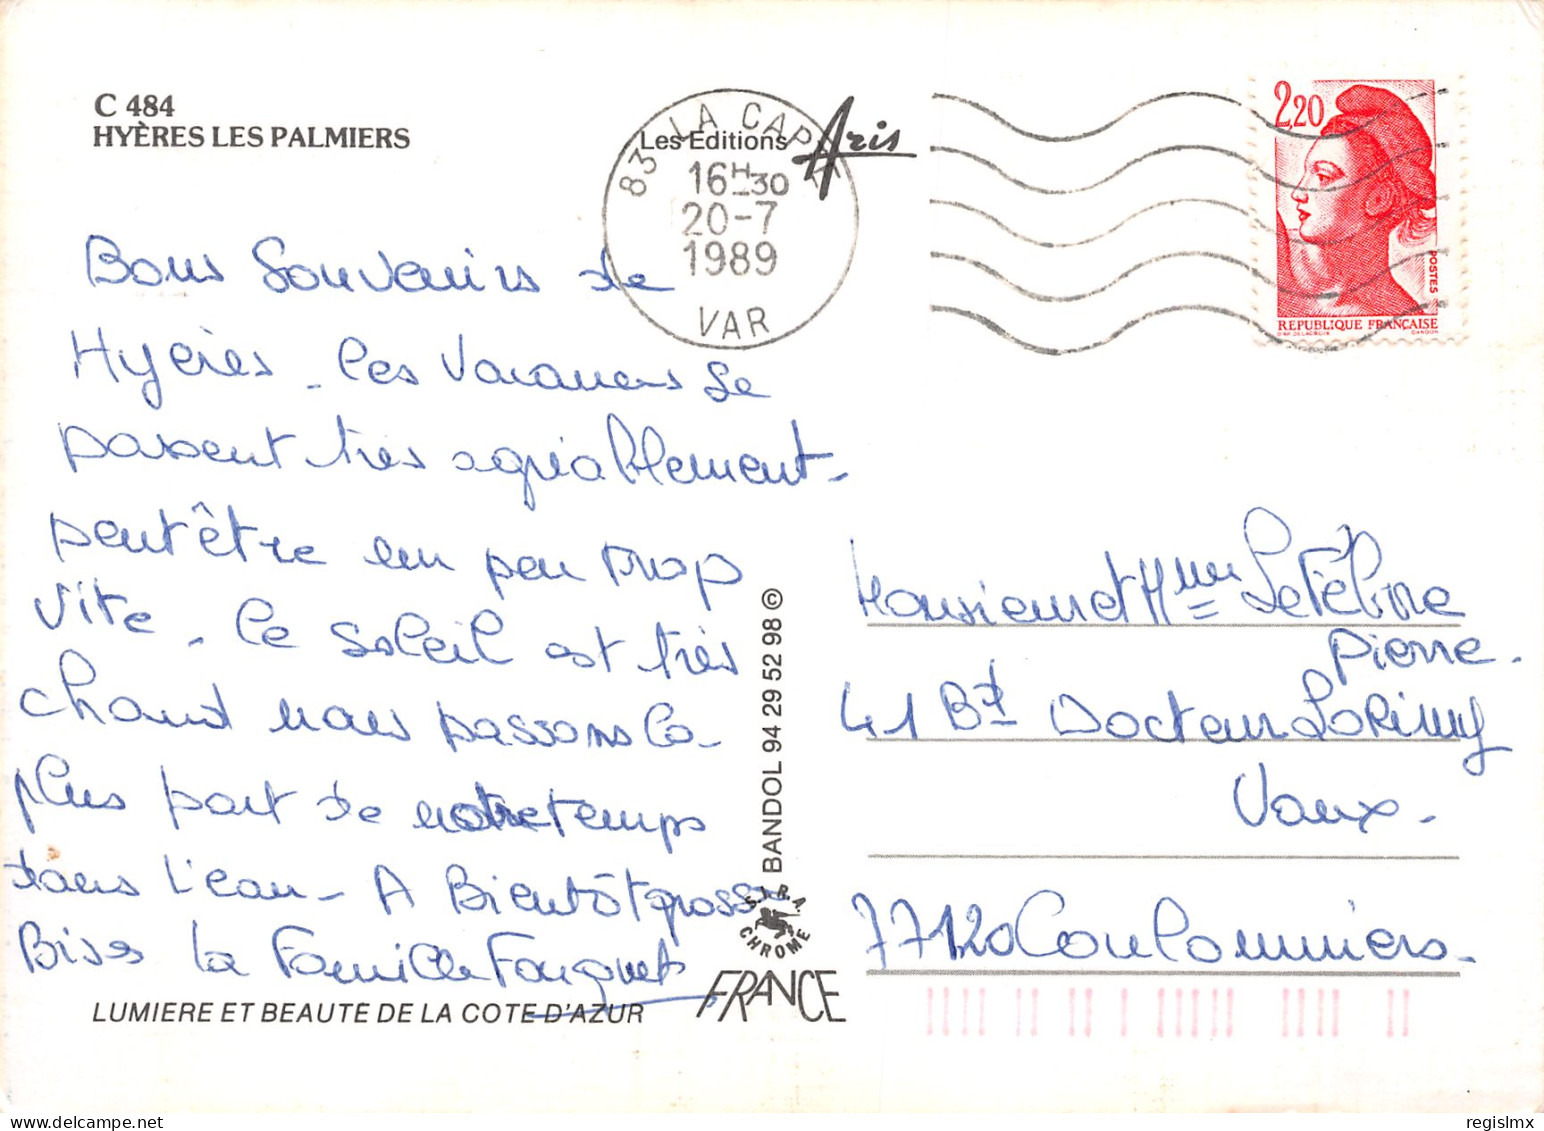 C 484
HYÈRES LES PALMIERS
Les Editions Aris
83 LA CAPTE
16H30
20-7
1989
VAR
2,20
POSTES
REPUBLIQUE FRANÇAISE
Bons Souvenirs de
Hyères - les vacances se
passent très agréablement -
peut être un peu trop
vite - le soleil est très
chaud nous passons la
plus part de notre temps
dans l'eau - A Bientôt grosses
Bises la Famille Fouquet
LUMIERE ET BEAUTE DE LA COTE D'AZUR
BANDOL 94 29 52 98 ©
S.I.R.A. CHROME
FRANCE
Monsieur et Mme Lefèbvre
Pierre.
41 Bd Docteur Lorimy
Vaux.
77120 Coulommiers.
regislmx